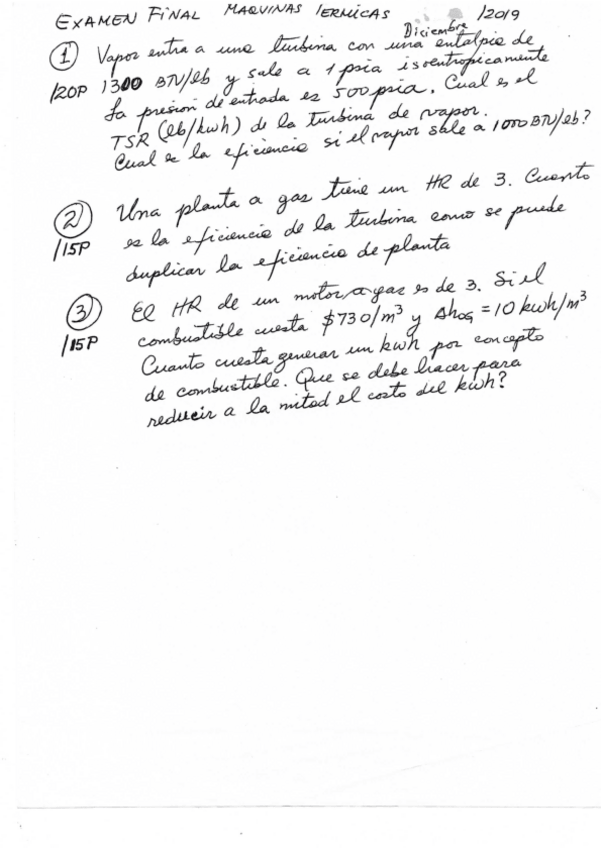 EXAMEN FINAL MAQUINAS TERMICAS Diciembre /2019
① Vapor entra a una turbina con una entalpia de
/20P 1300 BTU/lb y sale a 1 psia isoentropicamente
La presion de entrada es 500 psia. Cual es el
TSR (lb/kwh) de la turbina de vapor.
Cual es la eficiencia si el vapor sale a 1000 BTU/lb?
② Una planta a gas tiene un HR de 3. Cuanto
/15P es la eficiencia de la turbina como se puede
duplicar la eficiencia de planta
③ El HR de un motor a gas es de 3. Si el
/15P combustible cuesta $730/m³ y Δhog = 10 kwh/m³
Cuanto cuesta generar un kwh por concepto
de combustible. Que se debe hacer para
reducir a la mitad el costo del kwh?